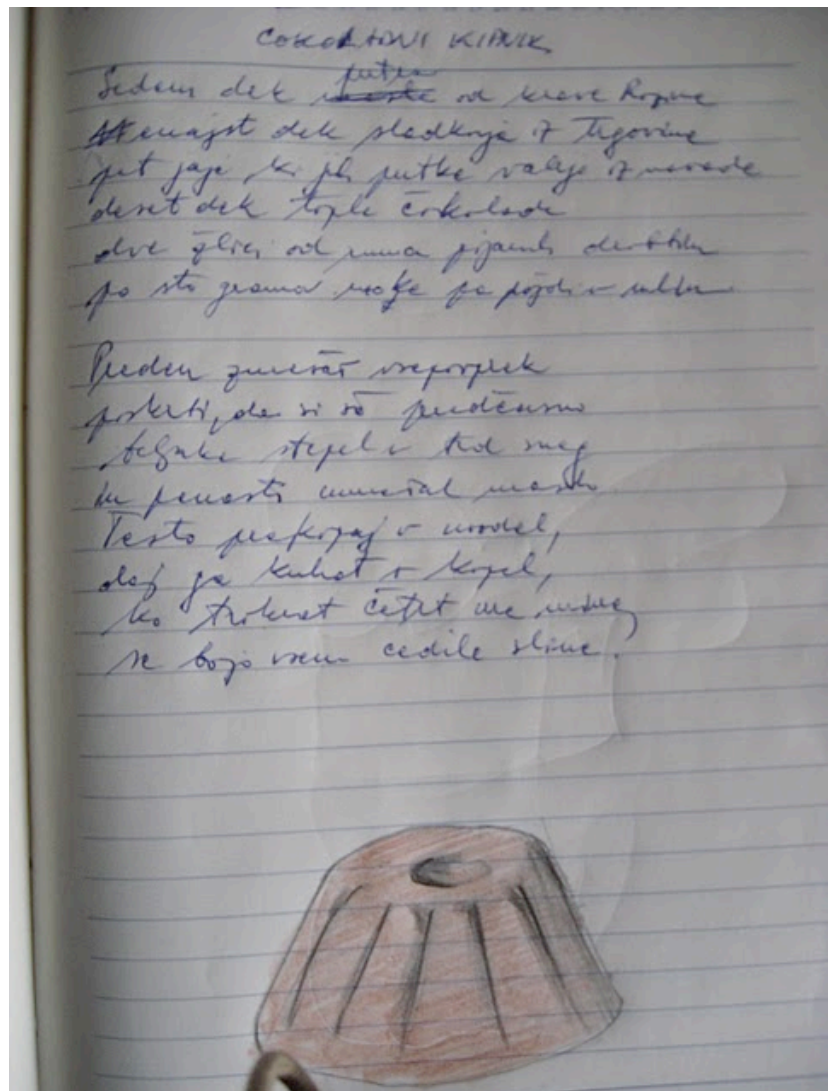 ČOKOLADNI KIPNIK
Sedem dek putra od krave
enajst dek sladkorja iz trgovine
pet jajc, ki jih putke valijo iz navade
deset dek tople čokolade
dve žlici od ruma pijanih
po sto gramov moke pa pojdi v
Preden zmešaš vsepovprek
poskrbi, da si že predčasno
beljake stepel v trd sneg
in penasto umešal maslo.
Testo prekopaj v model,
daj ga kuhat v kopel,
ko trikrat četrt ure mine,
se bojo vsem cedile sline!